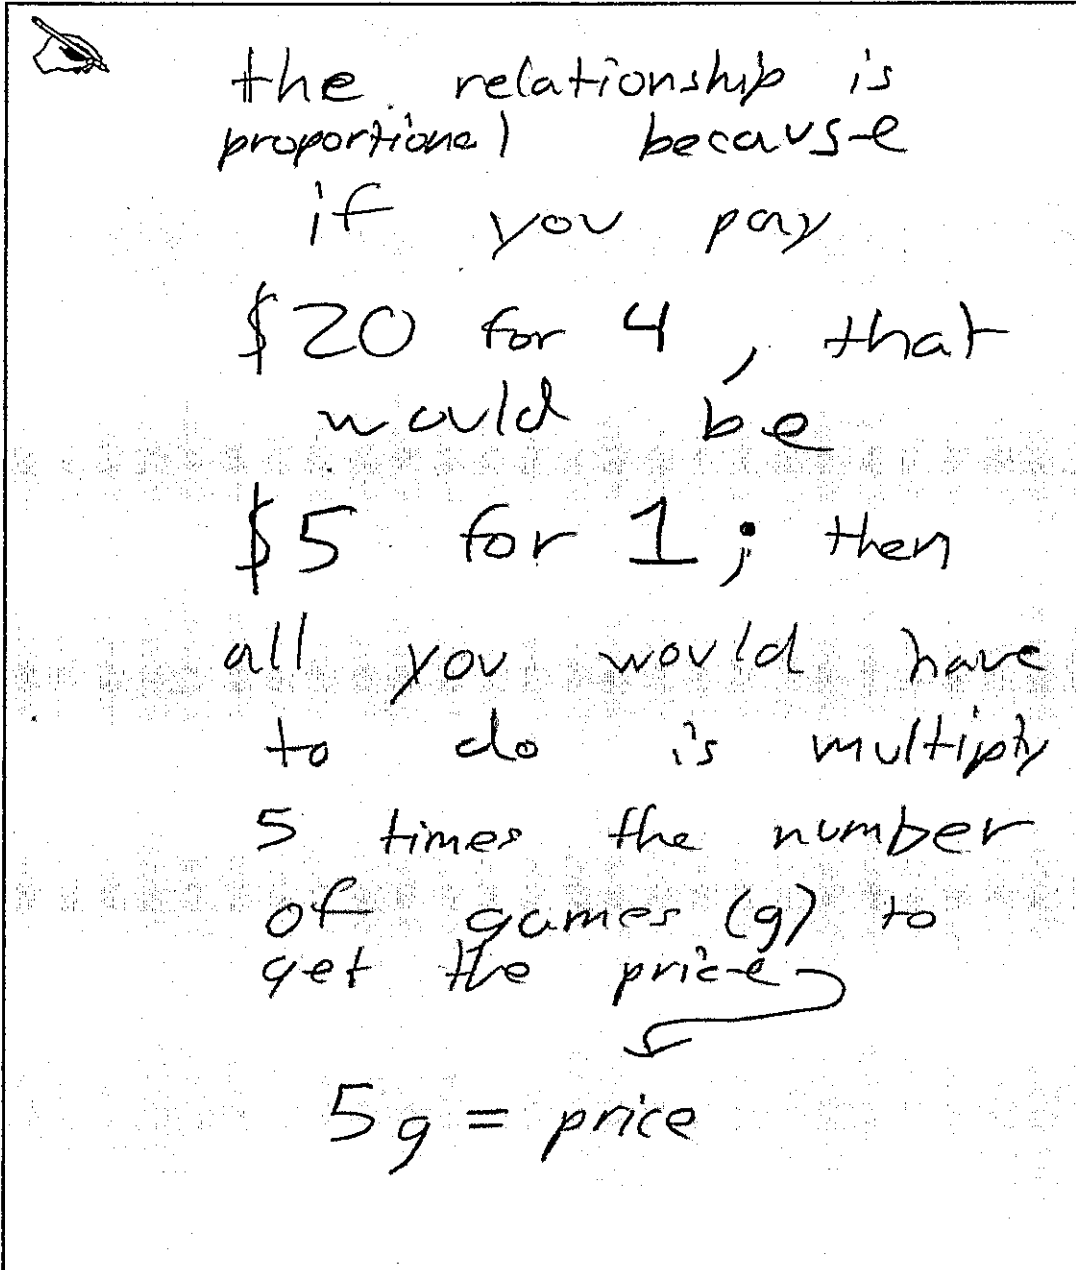 the relationship is
proportional because
if you pay
$20 for 4, that
would be
$5 for 1; then
all you would have
to do is multiply
5 times the number
of games (g) to
get the price
5g = price